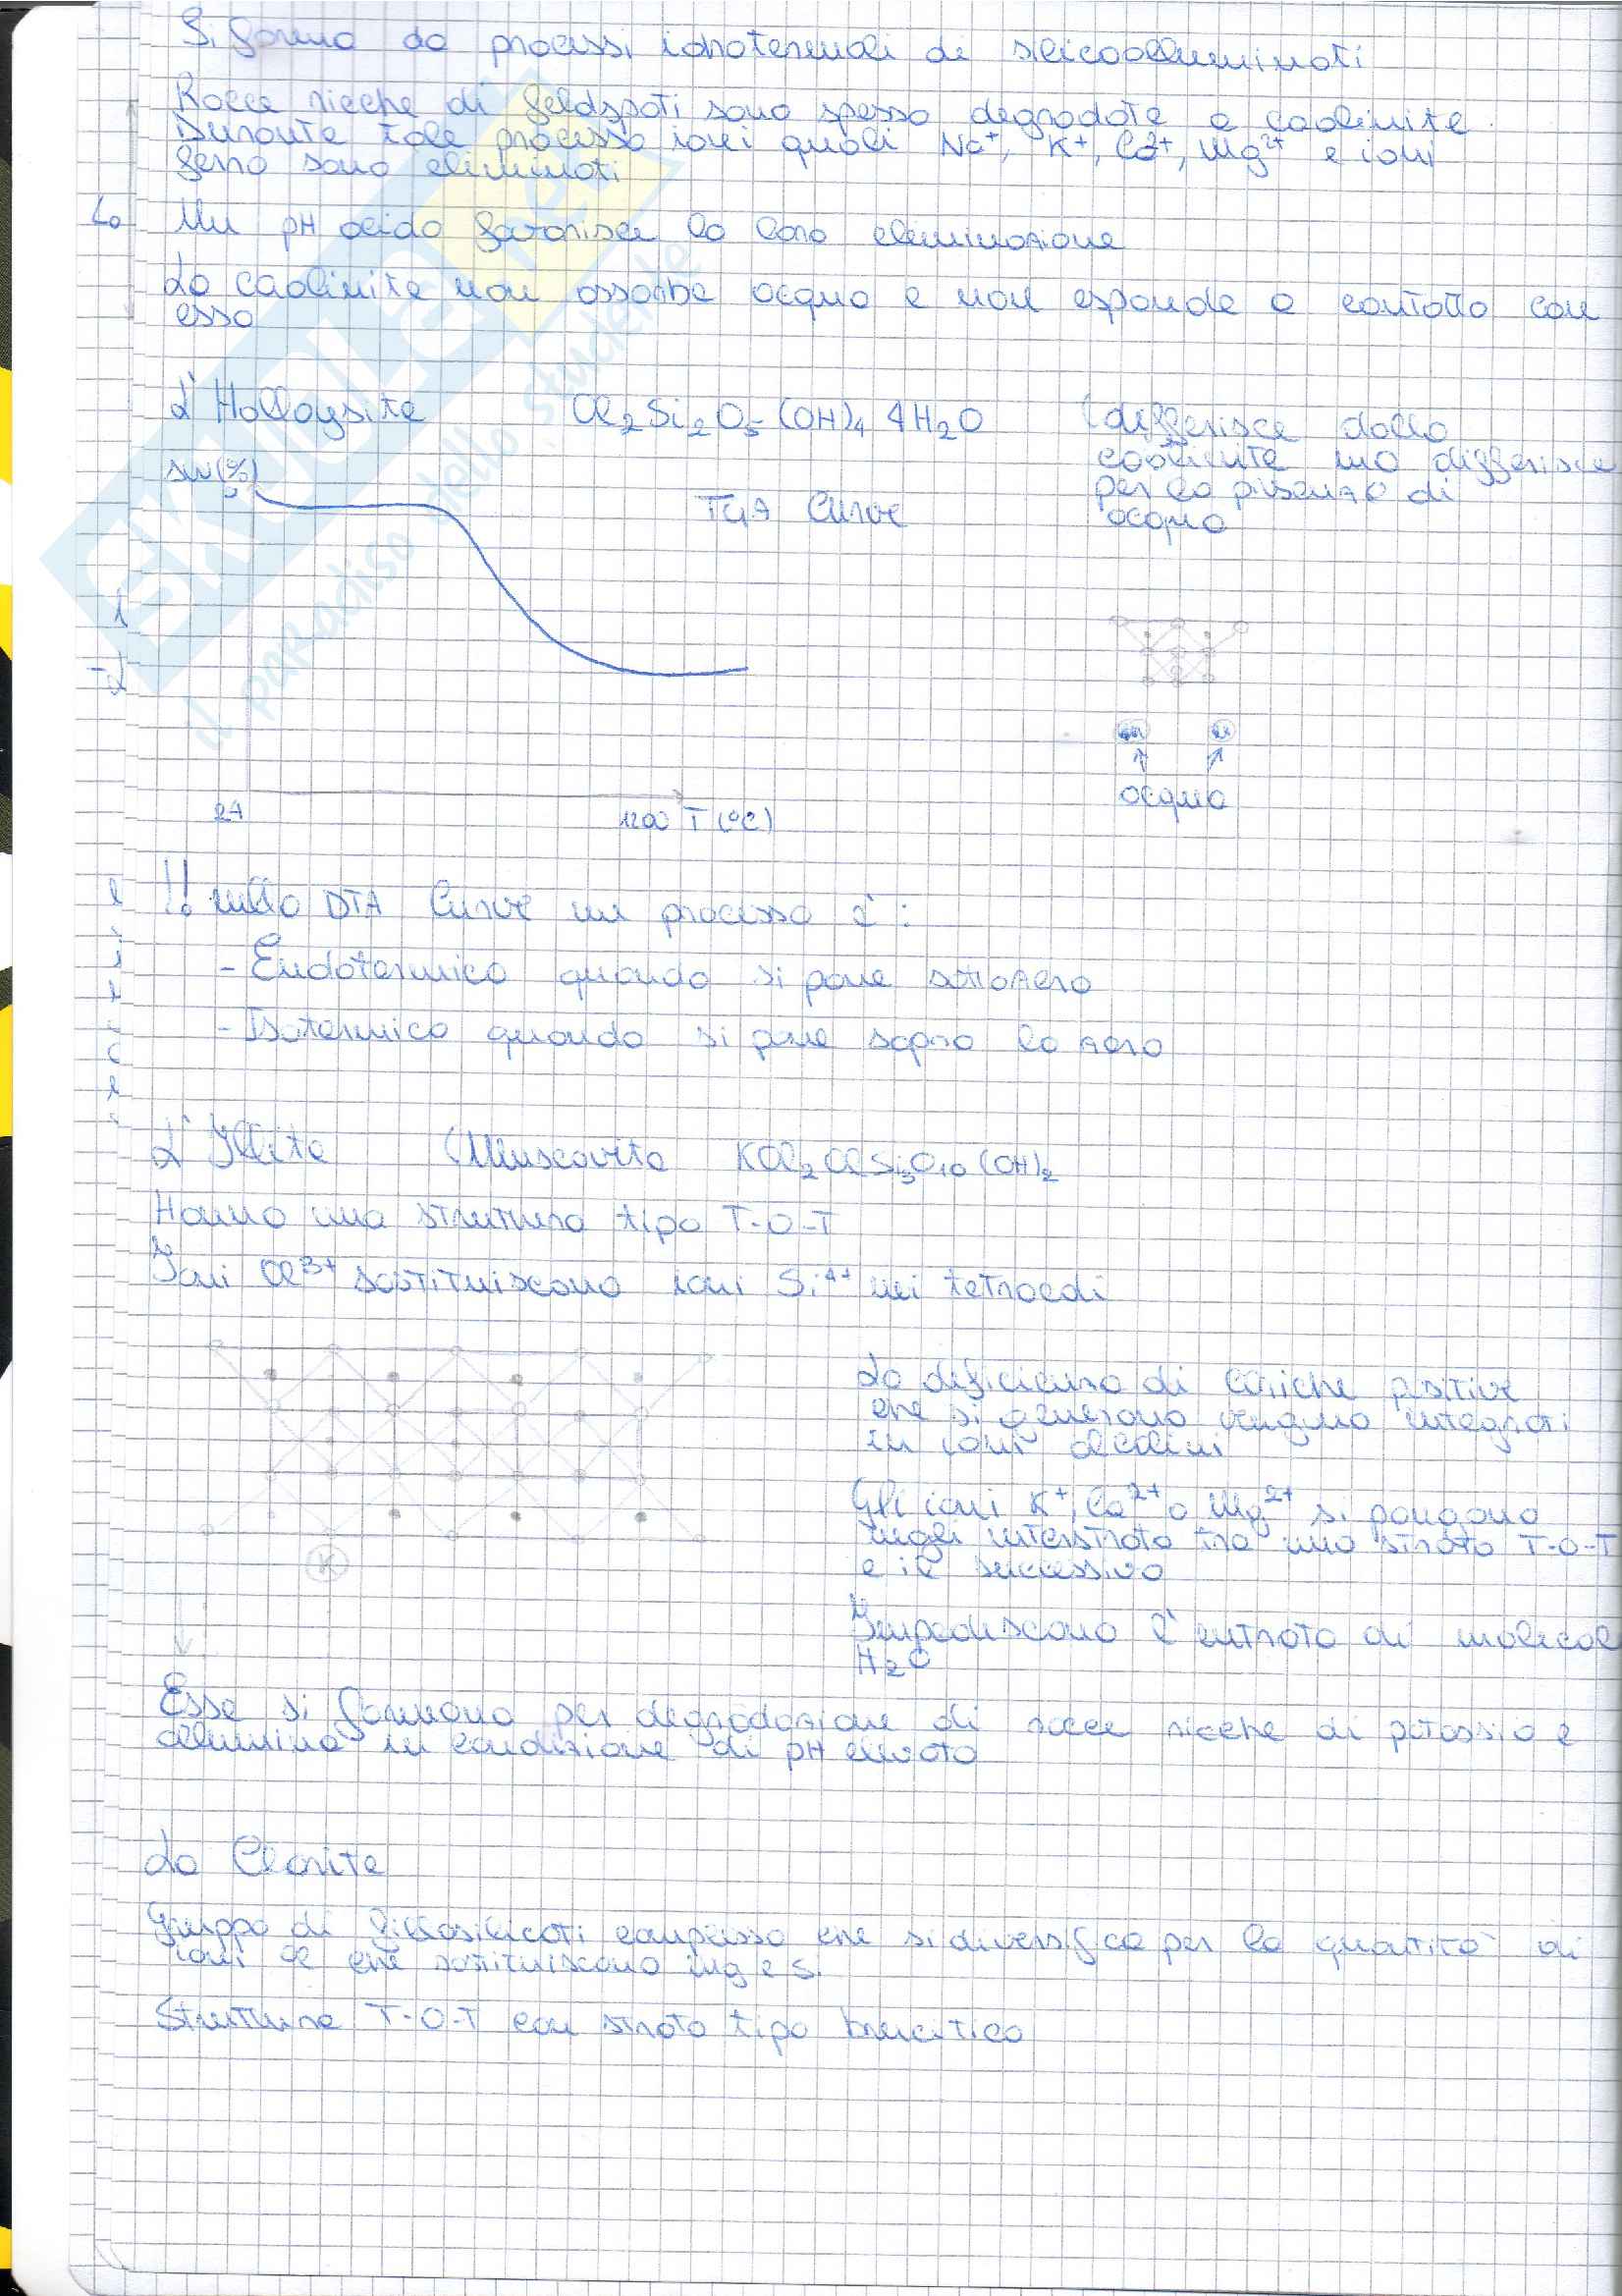 Si forma da processi idrotermali di silicoalluminati
Rocce ricche di feldspati sono spesso degradate a caolinite.
Durante tale processo ioni quali Na+, K+, Ca2+, Mg2+ e ioni
ferro sono eliminati
Un pH acido favorisce la loro eliminazione
La caolinite non assorbe acqua e non espande a contatto con
essa
L'Halloysite Al2Si2O5(OH)4 4H2O (differisce dalla
caolinite ma differisce
per la presenza di
acqua
0
TGA Curve
-2
acqua
24 1200 T(°C)
!! nella DTA Curve un processo è:
- Endotermico quando si pone sottozero
- Isotermico quando si pone sopra lo zero
L'Illite (Muscovite KAl2AlSi3O10(OH)2
Hanno una struttura tipo T-O-T
Ioni Al3+ sostituiscono ioni Si4+ nei tetraedi
La deficienza di cariche positive
che si generano vengno integrati
in ioni alcalini
Gli ioni K+, Ca2+ o Mg2+ si pongono
negli interstrato tra uno strato T-O-T
e il successivo
K
Impediscono l'entrata di molecol
H2O
Esse si formano per degradazione di rocce ricche di potassio e
allumina in condizione di pH elevato
La Clorite
Gruppo di fillosilicati complesso che si diversifca per la quantità di
ioni Al che sostituiscono Mg e Si
Struttura T-O-T con strato tipo brucitico
SKUOLA.net
il paradiso dello studente